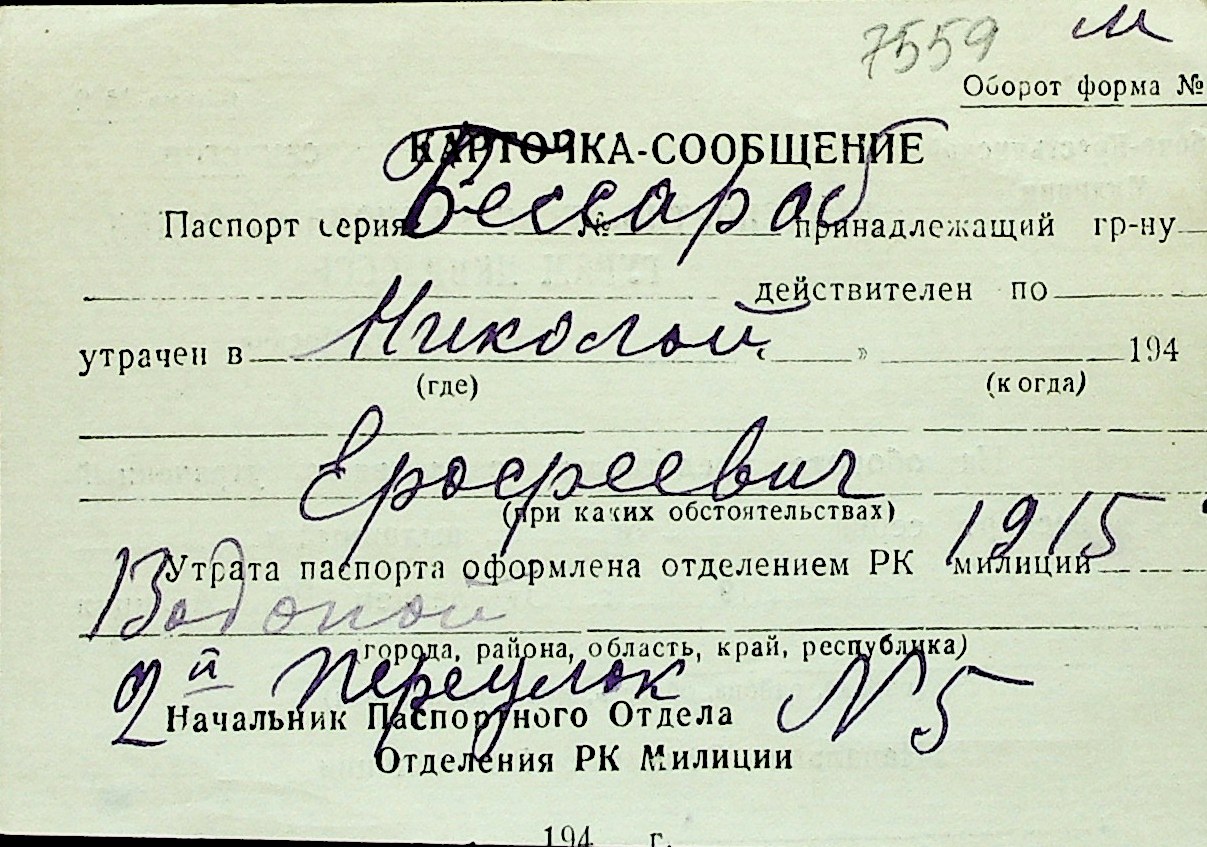 7559 м
Оборот форма №
КАРТОЧКА-СООБЩЕНИЕ
Бессараб
Паспорт серия № принадлежащий гр-ну
действителен по
Николай
утрачен в « » 194
(где) (когда)
Ерофеевич
(при каких обстоятельствах)
1915
Утрата паспорта оформлена отделением РК милиции
Водопой
(города, района, область, край, республика)
2й переулок N 5
Начальник Паспортного Отдела
Отделения РК Милиции
194 г.